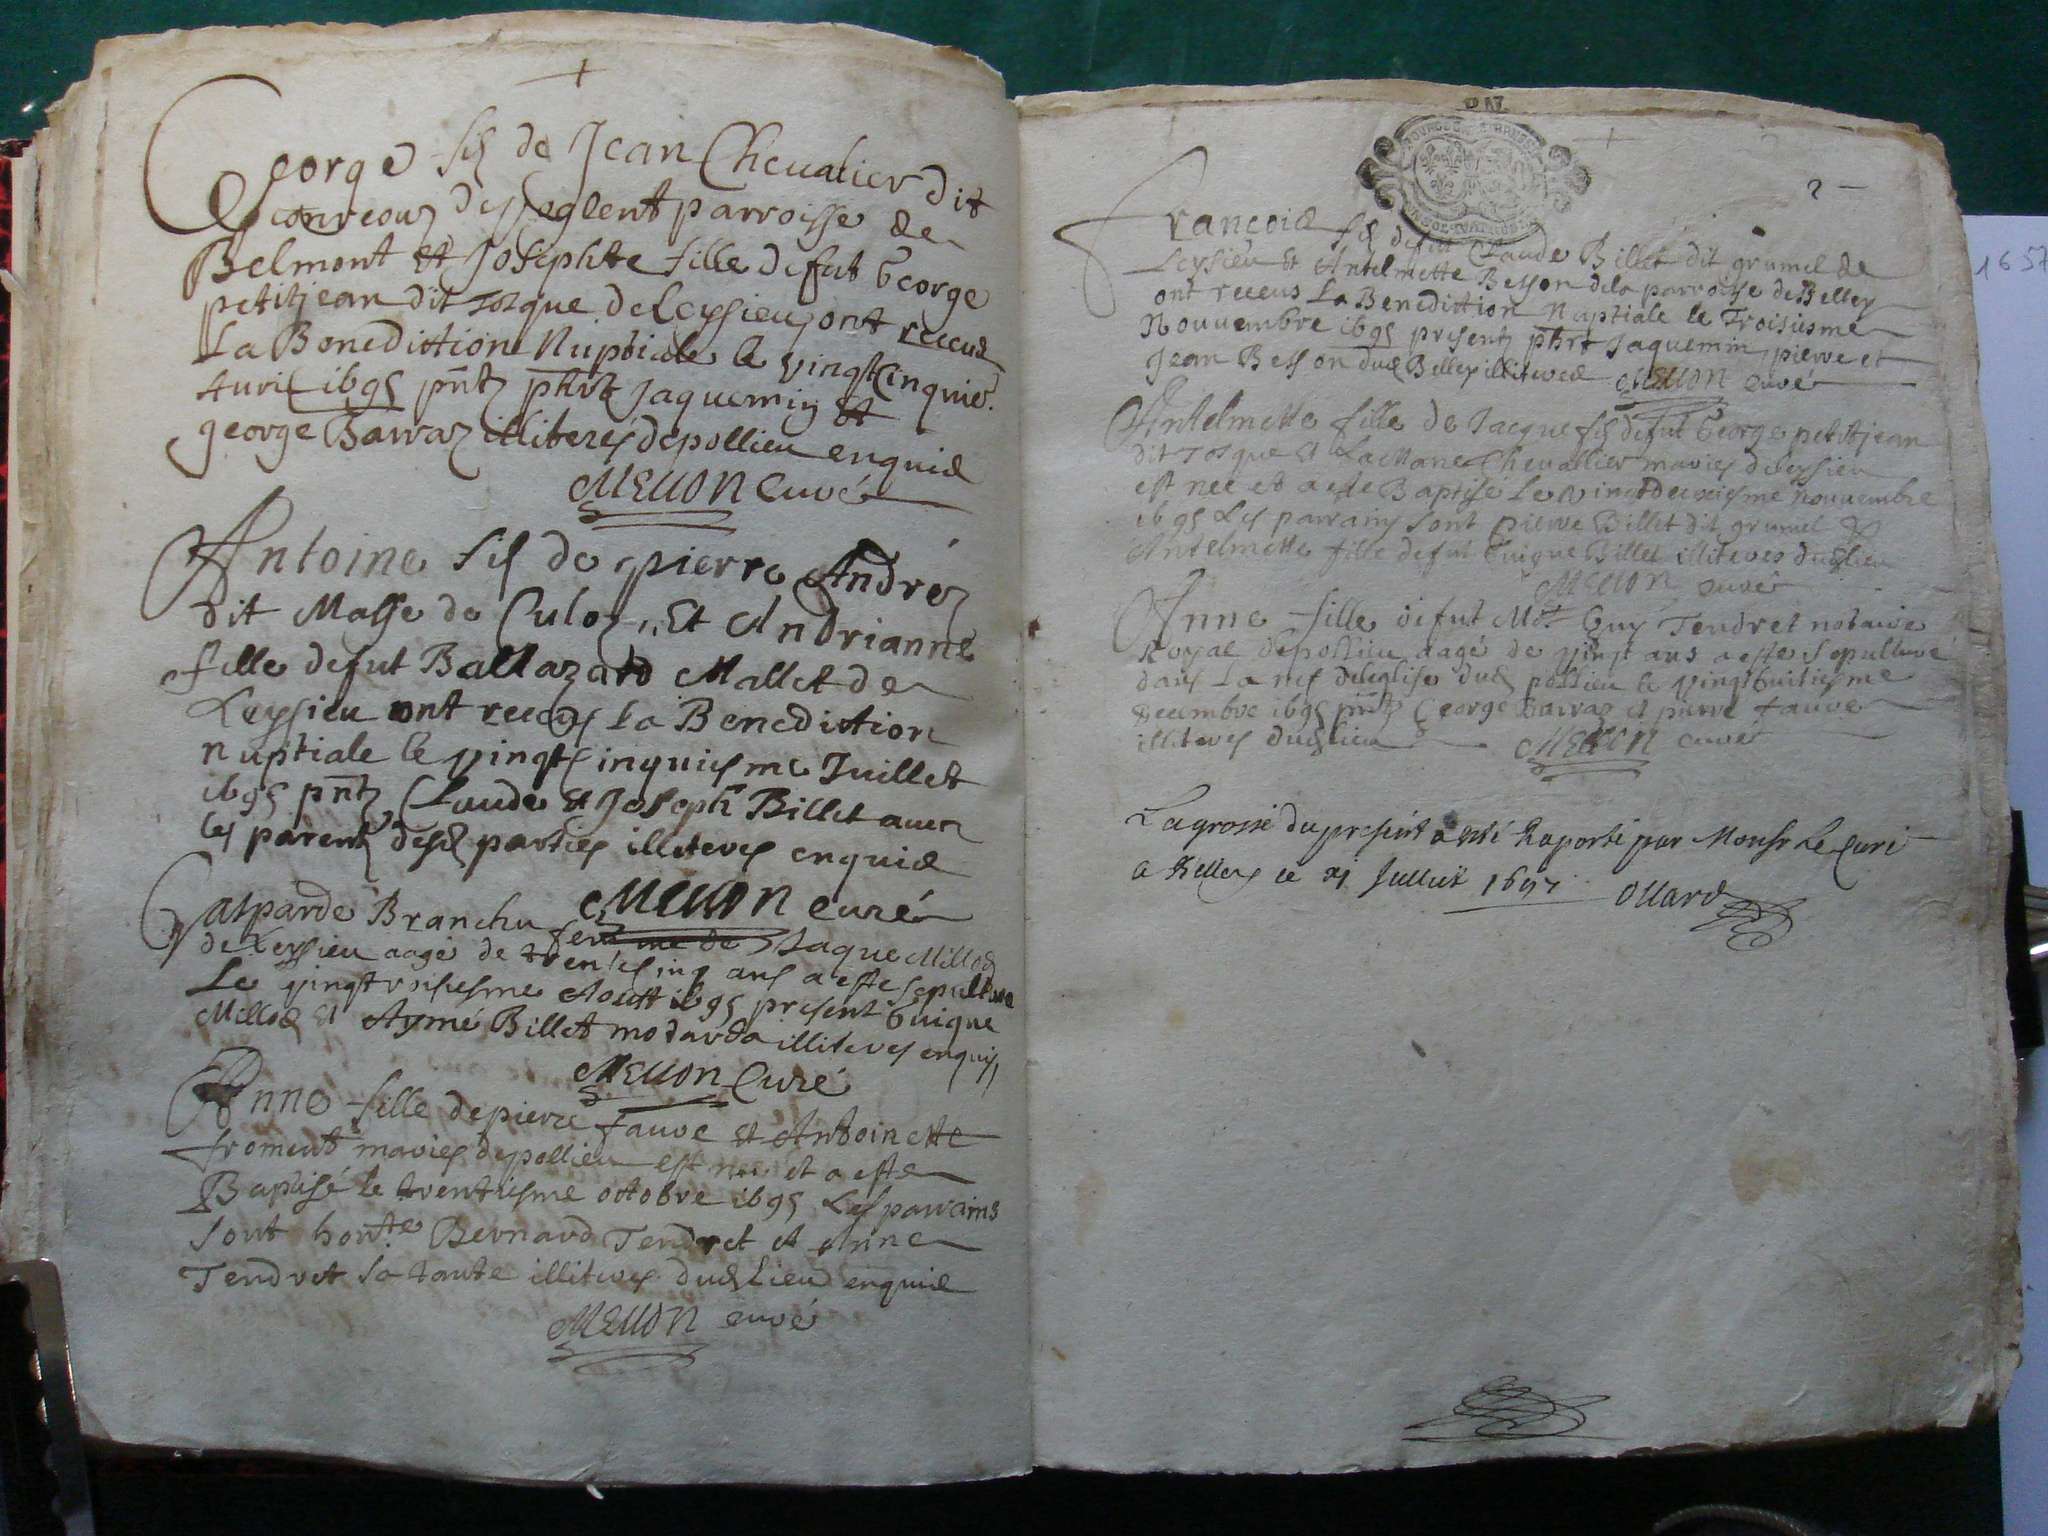 George fils de Jean Chevalier dit
parroisse de
Belmont et Josephte fille de fut George
petitjean dit Tosque de Leysieu ont receus
La Benediction Nuptiale le vingtcinquie.
Avril 1695 pnts phrt Jaquemin et
george Barraz illiterés de pollieu enquis
MELLON Curé
Antoine fils de pierre Andréz
dit Masse de Culoz, Et Andrianne
fille de fut Baltazard Mallet de
Leysieu ont receus La Benediction
nuptiale le vingtcinquiesme Juillet
1695 pnts Claude et Joseph Billet avec
les parents desd parties illiteres enquis
MELLON curé
Gasparde Branchu femme de Jaque Milliod
de Leysieu aagé de trentecinq ans a este sepulture
Le vingtroisiesme Aoust 1695 present Guigue
Milliod et Aymé Billet illiteres enquis
MELLON Curé
Anne fille de pierre fauve et Antoinette
froment mariés de pollieu est née et a este
Baptisé le trentiesme octobre 1695 Les parrains
sont hon.te Bernard Tendret et Anne
Tendret sa tante illiteres dud lieu enquis
MELLON curé
2
Francois fils de fut Claude Billet dit grumel de
Leysieu et Antelmette Besson de la parroisse de Belley
ont receus La Benediction Nuptiale le Troisiesme
Nouvembre 1695 presents phrt Jaquemin pierre et
Jean Besson dud Belley illiteres MELLON curé
Antelmette fille de Jacque fils de fut George petitjean
dit Tosque et Chevallier mariés de leysieu
est née et a este Baptisé Le vingtdeuxiesme Nouvembre
1695 Les parrains sont pierre Billet dit grumel et
Antelmette fille de fut Guigue Billet illiteres dud lieu
MELLON curé
Anne fille de fut Me Guy Tendret notaire
Royal de pollieu aagé de vingt ans a este sepulturé
dans La nef de leglise dud pollieu le vingthuitiesme
Decembre 1695 pnts George Barraz et pierre fauve
illiteres dud lieu MELLON curé
La grosse du present a esté Raporté par Monsr Le Curé
a Belley ce 21 Juillet 1697 Ollard
1657